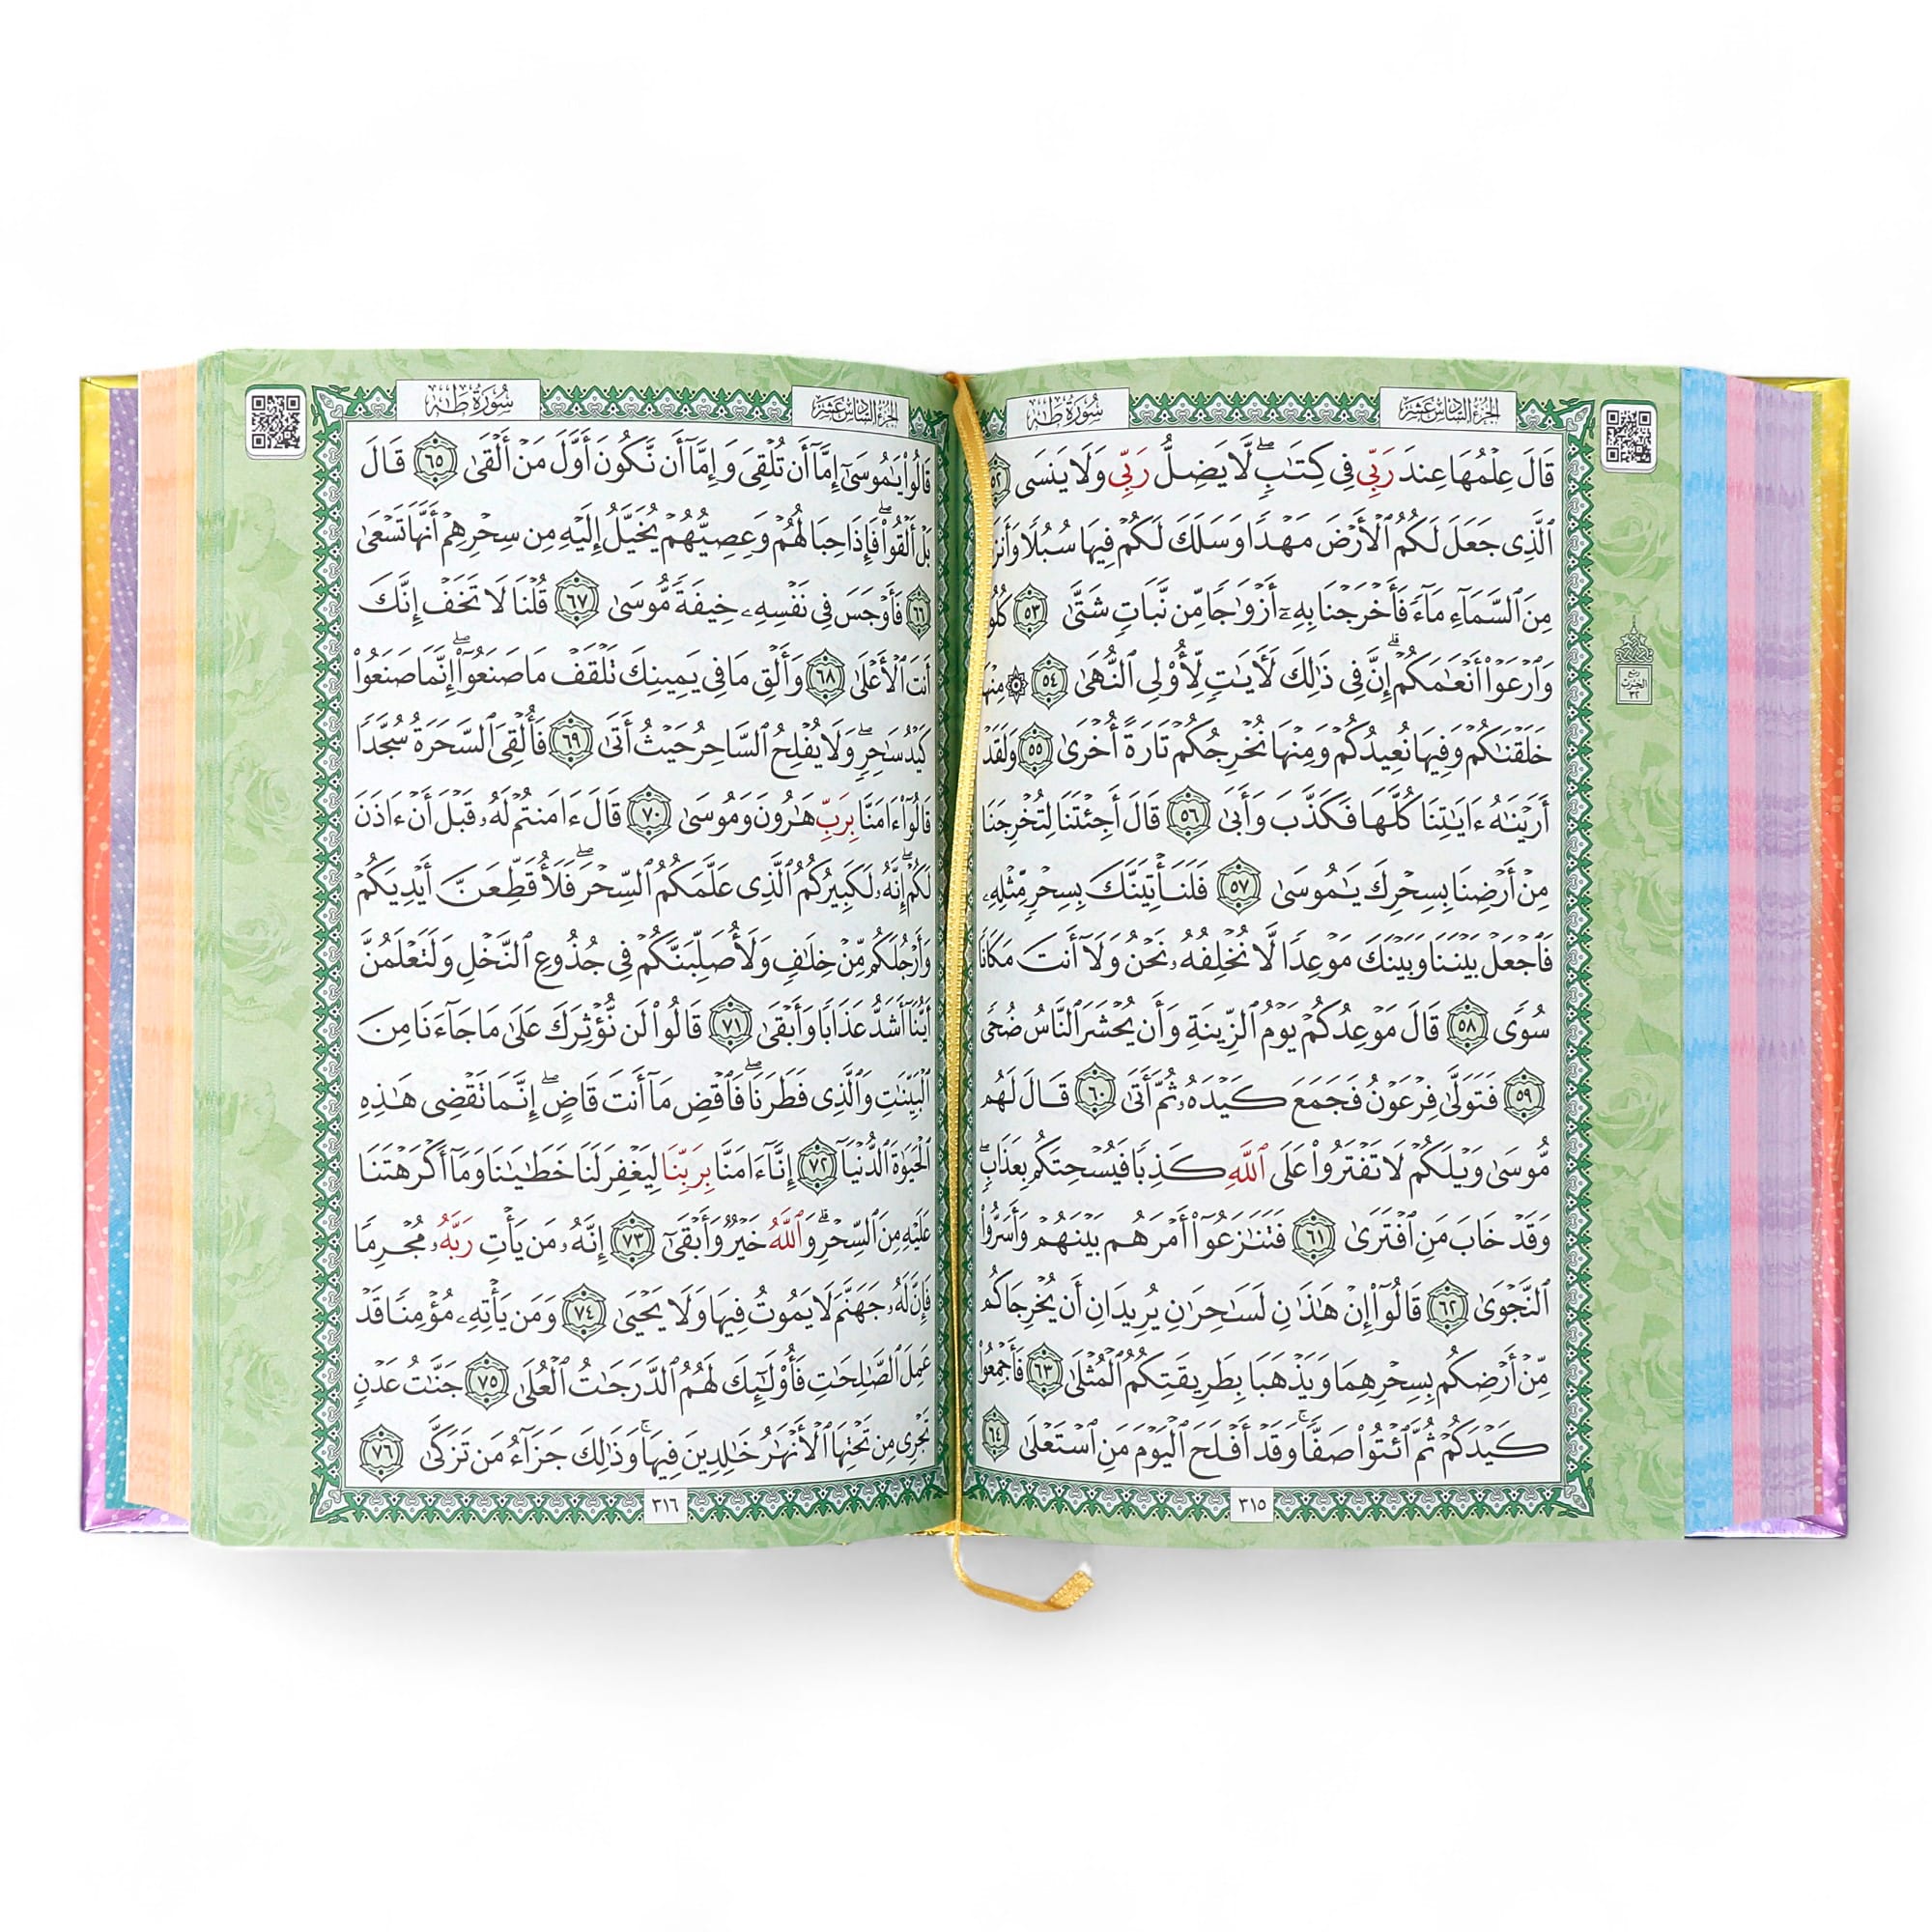 الجزء السادس عشر
سورة طه
قَالَ عِلْمُهَا عِندَ رَبِّي فِي كِتَٰبٖۖ لَّا يَضِلُّ رَبِّي وَلَا يَنسَى ٥٢
ٱلَّذِي جَعَلَ لَكُمُ ٱلۡأَرۡضَ مَهۡدٗا وَسَلَكَ لَكُمۡ فِيهَا سُبُلٗا وَأَنزَلَ
مِنَ ٱلسَّمَآءِ مَآءٗ فَأَخۡرَجۡنَا بِهِۦٓ أَزۡوَٰجٗا مِّن نَّبَاتٖ شَتَّىٰ ٥٣ كُلُواْ
وَٱرۡعَوۡاْ أَنۡعَٰمَكُمۡۚ إِنَّ فِي ذَٰلِكَ لَأٓيَٰتٖ لِّأُوْلِي ٱلنُّهَىٰ ٥٤ ۞ مِنۡهَا
خَلَقۡنَٰكُمۡ وَفِيهَا نُعِيدُكُمۡ وَمِنۡهَا نُخۡرِجُكُمۡ تَارَةً أُخۡرَىٰ ٥٥ وَلَقَدۡ
أَرَيۡنَٰهُ ءَايَٰتِنَا كُلَّهَا فَكَذَّبَ وَأَبَىٰ ٥٦ قَالَ أَجِئۡتَنَا لِتُخۡرِجَنَا
مِنۡ أَرۡضِنَا بِسِحۡرِكَ يَٰمُوسَىٰ ٥٧ فَلَنَأۡتِيَنَّكَ بِسِحۡرٖ مِّثۡلِهِۦ
فَٱجۡعَلۡ بَيۡنَنَا وَبَيۡنَكَ مَوۡعِدٗا لَّا نُخۡلِفُهُۥ نَحۡنُ وَلَآ أَنتَ مَكَانٗا
سُوٗى ٥٨ قَالَ مَوۡعِدُكُمۡ يَوۡمُ ٱلزِّينَةِ وَأَن يُحۡشَرَ ٱلنَّاسُ ضُحٗى
٥٩ فَتَوَلَّىٰ فِرۡعَوۡنُ فَجَمَعَ كَيۡدَهُۥ ثُمَّ أَتَىٰ ٦٠ قَالَ لَهُم
مُّوسَىٰ وَيۡلَكُمۡ لَا تَفۡتَرُواْ عَلَى ٱللَّهِ كَذِبٗا فَيُسۡحِتَكُم بِعَذَابٖۖ
وَقَدۡ خَابَ مَنِ ٱفۡتَرَىٰ ٦١ فَتَنَٰزَعُوٓاْ أَمۡرَهُم بَيۡنَهُمۡ وَأَسَرُّواْ
ٱلنَّجۡوَىٰ ٦٢ قَالُوٓاْ إِنۡ هَٰذَٰنِ لَسَٰحِرَٰنِ يُرِيدَانِ أَن يُخۡرِجَاكُم
مِّنۡ أَرۡضِكُم بِسِحۡرِهِمَا وَيَذۡهَبَا بِطَرِيقَتِكُمُ ٱلۡمُثۡلَىٰ ٦٣ فَأَجۡمِعُواْ
كَيۡدَكُمۡ ثُمَّ ٱئۡتُواْ صَفّٗاۚ وَقَدۡ أَفۡلَحَ ٱلۡيَوۡمَ مَنِ ٱسۡتَعۡلَىٰ ٦٤
٣١٥
ربع
الحزب
٣٢
الجزء السادس عشر
سورة طه
قَالُواْ يَٰمُوسَىٰٓ إِمَّآ أَن تُلۡقِيَ وَإِمَّآ أَن نَّكُونَ أَوَّلَ مَنۡ أَلۡقَىٰ ٦٥ قَالَ
بَلۡ أَلۡقُواْۖ فَإِذَا حِبَالُهُمۡ وَعِصِيُّهُمۡ يُخَيَّلُ إِلَيۡهِ مِن سِحۡرِهِمۡ أَنَّهَا تَسۡعَىٰ
٦٦ فَأَوۡجَسَ فِي نَفۡسِهِۦ خِيفَةٗ مُّوسَىٰ ٦٧ قُلۡنَا لَا تَخَفۡ إِنَّكَ
أَنتَ ٱلۡأَعۡلَىٰ ٦٨ وَأَلۡقِ مَا فِي يَمِينِكَ تَلۡقَفۡ مَا صَنَعُوٓاْۖ إِنَّمَا صَنَعُواْ
كَيۡدُ سَٰحِرٖۖ وَلَا يُفۡلِحُ ٱلسَّاحِرُ حَيۡثُ أَتَىٰ ٦٩ فَأُلۡقِيَ ٱلسَّحَرَةُ سُجَّدٗا
قَالُوٓاْ ءَامَنَّا بِرَبِّ هَٰرُونَ وَمُوسَىٰ ٧٠ قَالَ ءَامَنتُمۡ لَهُۥ قَبۡلَ أَنۡ ءَاذَنَ
لَكُمۡۖ إِنَّهُۥ لَكَبِيرُكُمُ ٱلَّذِي عَلَّمَكُمُ ٱلسِّحۡرَۖ فَلَأُقَطِّعَنَّ أَيۡدِيَكُمۡ
وَأَرۡجُلَكُم مِّنۡ خِلَٰفٖ وَلَأُصَلِّبَنَّكُمۡ فِي جُذُوعِ ٱلنَّخۡلِ وَلَتَعۡلَمُنَّ
أَيُّنَآ أَشَدُّ عَذَابٗا وَأَبۡقَىٰ ٧١ قَالُواْ لَن نُّؤۡثِرَكَ عَلَىٰ مَا جَآءَنَا مِنَ
ٱلۡبَيِّنَٰتِ وَٱلَّذِي فَطَرَنَاۖ فَٱقۡضِ مَآ أَنتَ قَاضٍۖ إِنَّمَا تَقۡضِي هَٰذِهِ
ٱلۡحَيَوٰةَ ٱلدُّنۡيَآ ٧٢ إِنَّآ ءَامَنَّا بِرَبِّنَا لِيَغۡفِرَ لَنَا خَطَٰيَٰنَا وَمَآ أَكۡرَهۡتَنَا
عَلَيۡهِ مِنَ ٱلسِّحۡرِۗ وَٱللَّهُ خَيۡرٞ وَأَبۡقَىٰٓ ٧٣ إِنَّهُۥ مَن يَأۡتِ رَبَّهُۥ مُجۡرِمٗا
فَإِنَّ لَهُۥ جَهَنَّمَ لَا يَمُوتُ فِيهَا وَلَا يَحۡيَىٰ ٧٤ وَمَن يَأۡتِهِۦ مُؤۡمِنٗا قَدۡ
عَمِلَ ٱلصَّٰلِحَٰتِ فَأُوْلَٰٓئِكَ لَهُمُ ٱلدَّرَجَٰتُ ٱلۡعُلَىٰ ٧٥ جَنَّٰتُ عَدۡنٖ
تَجۡرِي مِن تَحۡتِهَا ٱلۡأَنۡهَٰرُ خَٰلِدِينَ فِيهَاۚ وَذَٰلِكَ جَزَآءُ مَن تَزَكَّىٰ ٧٦
٣١٦